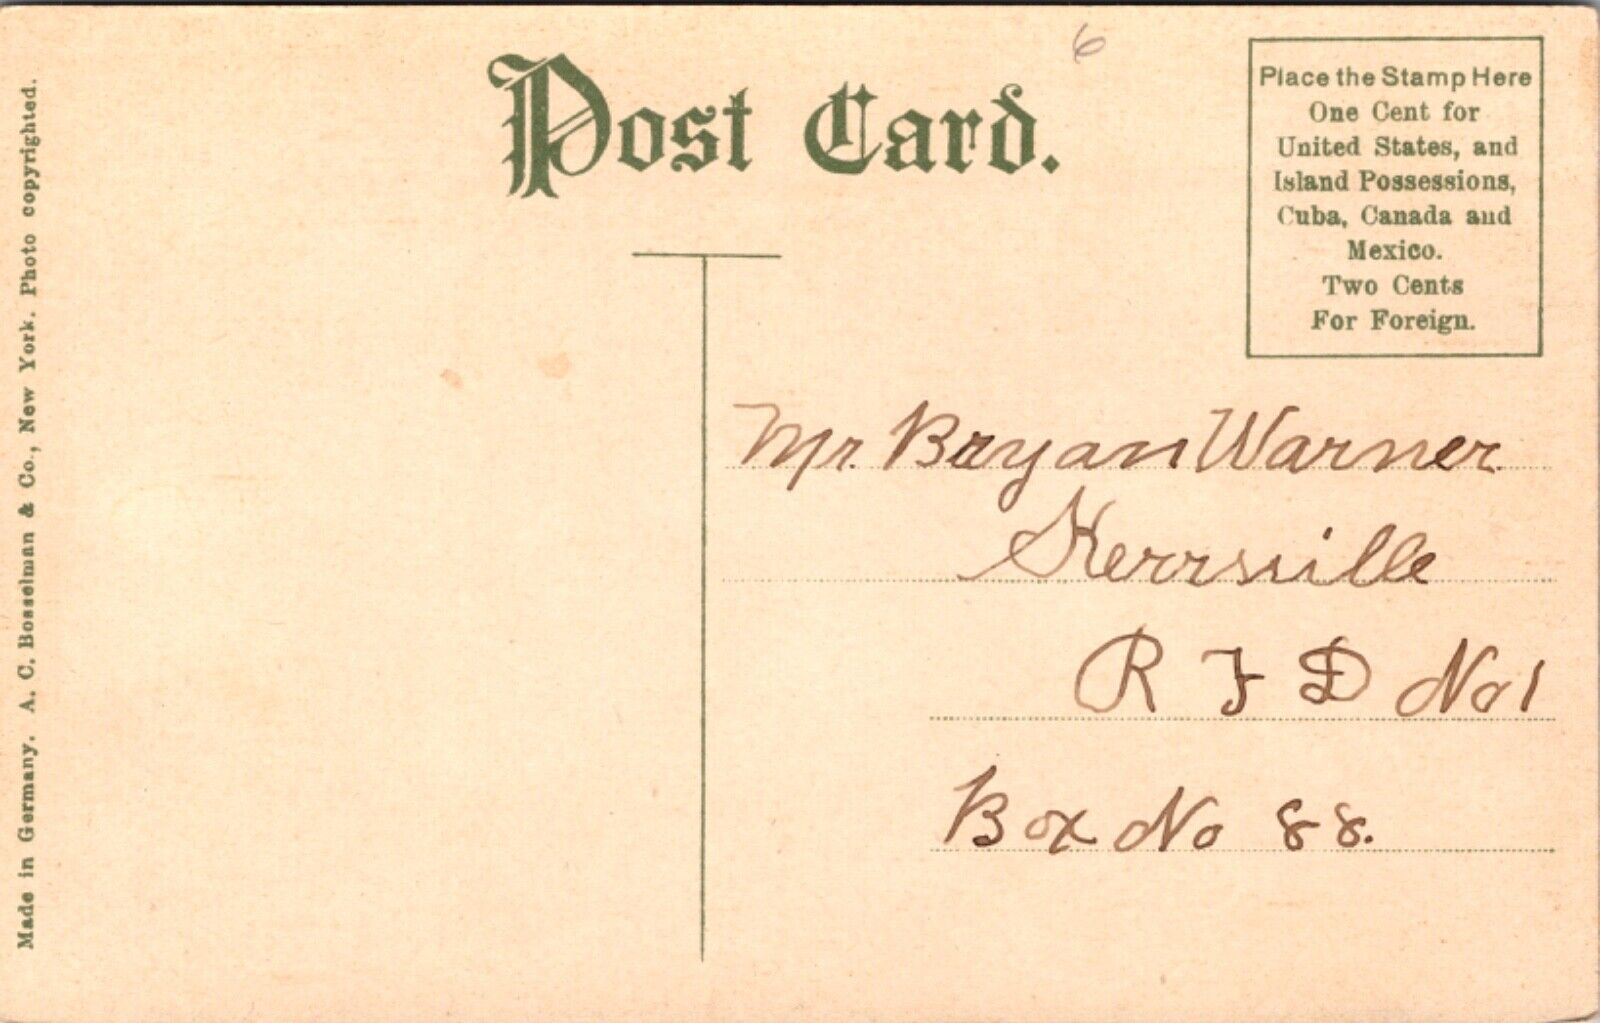 6
Post Card.
Place the Stamp Here
One Cent for
United States, and
Island Possessions,
Cuba, Canada and
Mexico.
Two Cents
For Foreign.
Made in Germany. A. C. Bosselman & Co., New York. Photo copyrighted.
Mr. Bryan Warner
Kerrsville
R F D No 1
Box No 88.